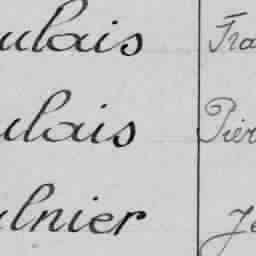 ulais Fra
ulais Pier
ulnier Je